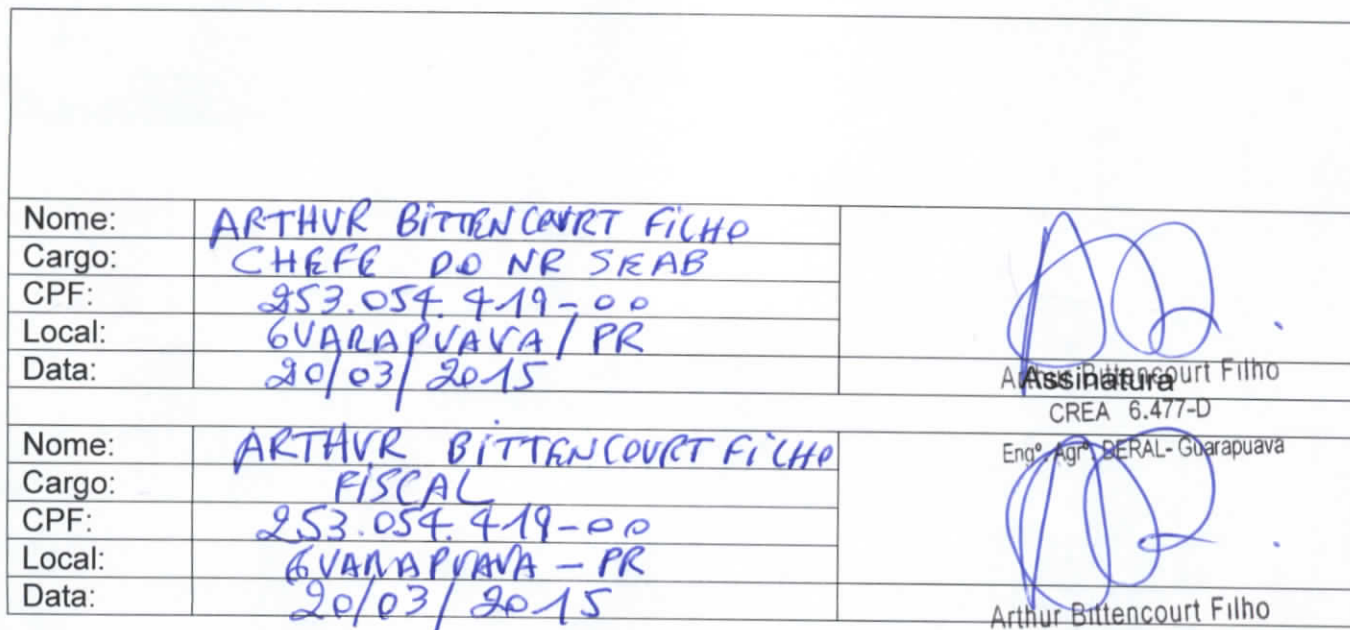 Nome: ARTHUR BITTENCOURT FILHO
Cargo: CHEFE DO NR SEAB
CPF: 253.054.419-00
Local: GUARAPUAVA / PR
Data: 20/03/2015
Arthur Bittencourt Filho
Assinatura
CREA 6.477-D
Engº Agrº DERAL- Guarapuava
Nome: ARTHUR BITTENCOURT FILHO
Cargo: FISCAL
CPF: 253.054.419-00
Local: GUARAPUAVA - PR
Data: 20/03/2015
Arthur Bittencourt Filho